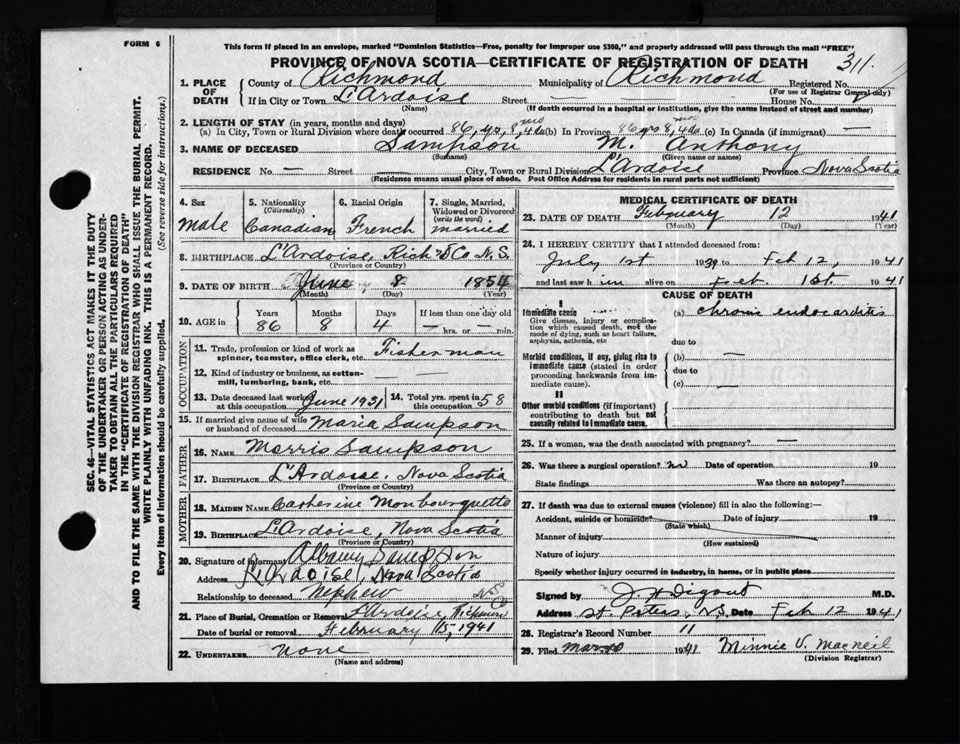 FORM 6
This form if placed in an envelope, marked "Dominion Statistics—Free, penalty for improper use $300," and properly addressed will pass through the mail "FREE"
PROVINCE OF NOVA SCOTIA—CERTIFICATE OF REGISTRATION OF DEATH 311.
1. PLACE OF DEATH
County of Richmond Municipality of Richmond Registered No.
(For use of Registrar General only)
If in City or Town L'Ardoise Street — House No.
(Name) (If death occurred in a hospital or institution, give the name instead of street and number)
2. LENGTH OF STAY (in years, months and days)
(a) In City, Town or Rural Division where death occurred 86 yrs, 8 mo 4 ds (b) In Province 86 yrs 8 mo 4 ds (c) In Canada (if immigrant) —
3. NAME OF DECEASED Sampson M. Anthony
(Surname) (Given name or names)
RESIDENCE No — Street — City, Town or Rural Division L'Ardoise Province Nova Scotia
(Residence means usual place of abode. Post Office Address for residents in rural parts not sufficient)
4. Sex
male
5. Nationality (Citizenship)
Canadian
6. Racial Origin
French
7. Single, Married, Widowed or Divorced (write the word)
married
8. BIRTHPLACE L'Ardoise, Rich'd Co N.S.
(Province or Country)
9. DATE OF BIRTH June 8 1854
(Month) (Day) (Year)
10. AGE in Years Months Days If less than one day old
86 8 4 — hrs. or — min.
OCCUPATION
11. Trade, profession or kind of work as spinner, teamster, office clerk, etc. Fisherman
12. Kind of industry or business, as cotton-mill, lumbering, bank, etc. — —
13. Date deceased last worked at this occupation June 1931
14. Total yrs. spent in this occupation 58
15. If married give name of wife or husband of deceased Maria Sampson
FATHER
16. NAME Morris Sampson
17. BIRTHPLACE L'Ardoise, Nova Scotia
(Province or Country)
MOTHER
18. MAIDEN NAME Catherine Monbourquette
19. BIRTHPLACE L'Ardoise, Nova Scotia
(Province or Country)
20. Signature of informant Albany Sampson
Address L'Ardoise, Nova Scotia
Relationship to deceased Nephew
21. Place of Burial, Cremation or Removal L'Ardoise, Richmond Co N.S.
Date of burial or removal February 15, 1941
22. UNDERTAKER None
(Name and address)
MEDICAL CERTIFICATE OF DEATH
23. DATE OF DEATH February 12 1941
(Month) (Day) (Year)
24. I HEREBY CERTIFY that I attended deceased from:
July 1st 1939 to Feb 12, 1941
and last saw h im alive on Feb. 1st. 1941
CAUSE OF DEATH
I
Immediate cause
Give disease, injury or complication which caused death, not the mode of dying, such as heart failure, asphyxia, asthenia, etc.
(a) chronic endocarditis
due to
Morbid conditions, if any, giving rise to immediate cause (stated in order proceeding backwards from immediate cause).
(b) —
due to
(c) —
II
Other morbid conditions (if important) contributing to death but not causally related to immediate cause.
25. If a woman, was the death associated with pregnancy? —
26. Was there a surgical operation? no Date of operation 19
State findings Was there an autopsy?
27. If death was due to external causes (violence) fill in also the following:—
Accident, suicide or homicide? Date of injury 19
(State which)
Manner of injury
(How sustained)
Nature of injury
Specify whether injury occurred in industry, in home, or in public place
Signed by J. A. Digout M.D.
Address St. Peters, N.S. Date Feb 12 1941
28. Registrar's Record Number 11
29. Filed 1941 Minnie V. MacNeil
(Division Registrar)
SEC. 46—VITAL STATISTICS ACT MAKES IT THE DUTY
OF THE UNDERTAKER OR PERSON ACTING AS UNDER-
TAKER TO OBTAIN ALL THE PARTICULARS REQUIRED
IN THE "CERTIFICATE OF REGISTRATION OF DEATH"
AND TO FILE THE SAME WITH THE DIVISION REGISTRAR WHO SHALL ISSUE THE BURIAL PERMIT.
WRITE PLAINLY WITH UNFADING INK. THIS IS A PERMANENT RECORD.
Every item of information should be carefully supplied. (See reverse side for instructions.)